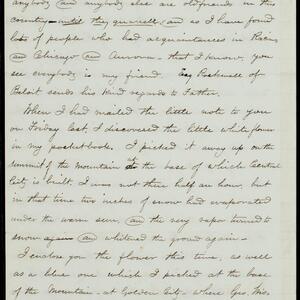 anybody and anybody else are old friends in this
country — until they quarrell, and as I have found
lots of people who had acquaintances in Racine
and Chicago and Aurora — that I know, you
see everybody is my friend. Esq of
Beloit sends his kind regards to Father.
When I had mailed the little note to you
on Friday last I discovered the little white flower
in my pocket book. I picked it away up on the
summit of the Mountain at the base of which Central
City is built. I was not there half an hour, but
in that time two inches of snow had evaporated
under the warm sun, and the very vapor turned to
snow again and whitened the ground again —
I enclose you the flower this time, as well
as a blue one which I picked at the base
of the Mountain — at Golden City — where Geo.